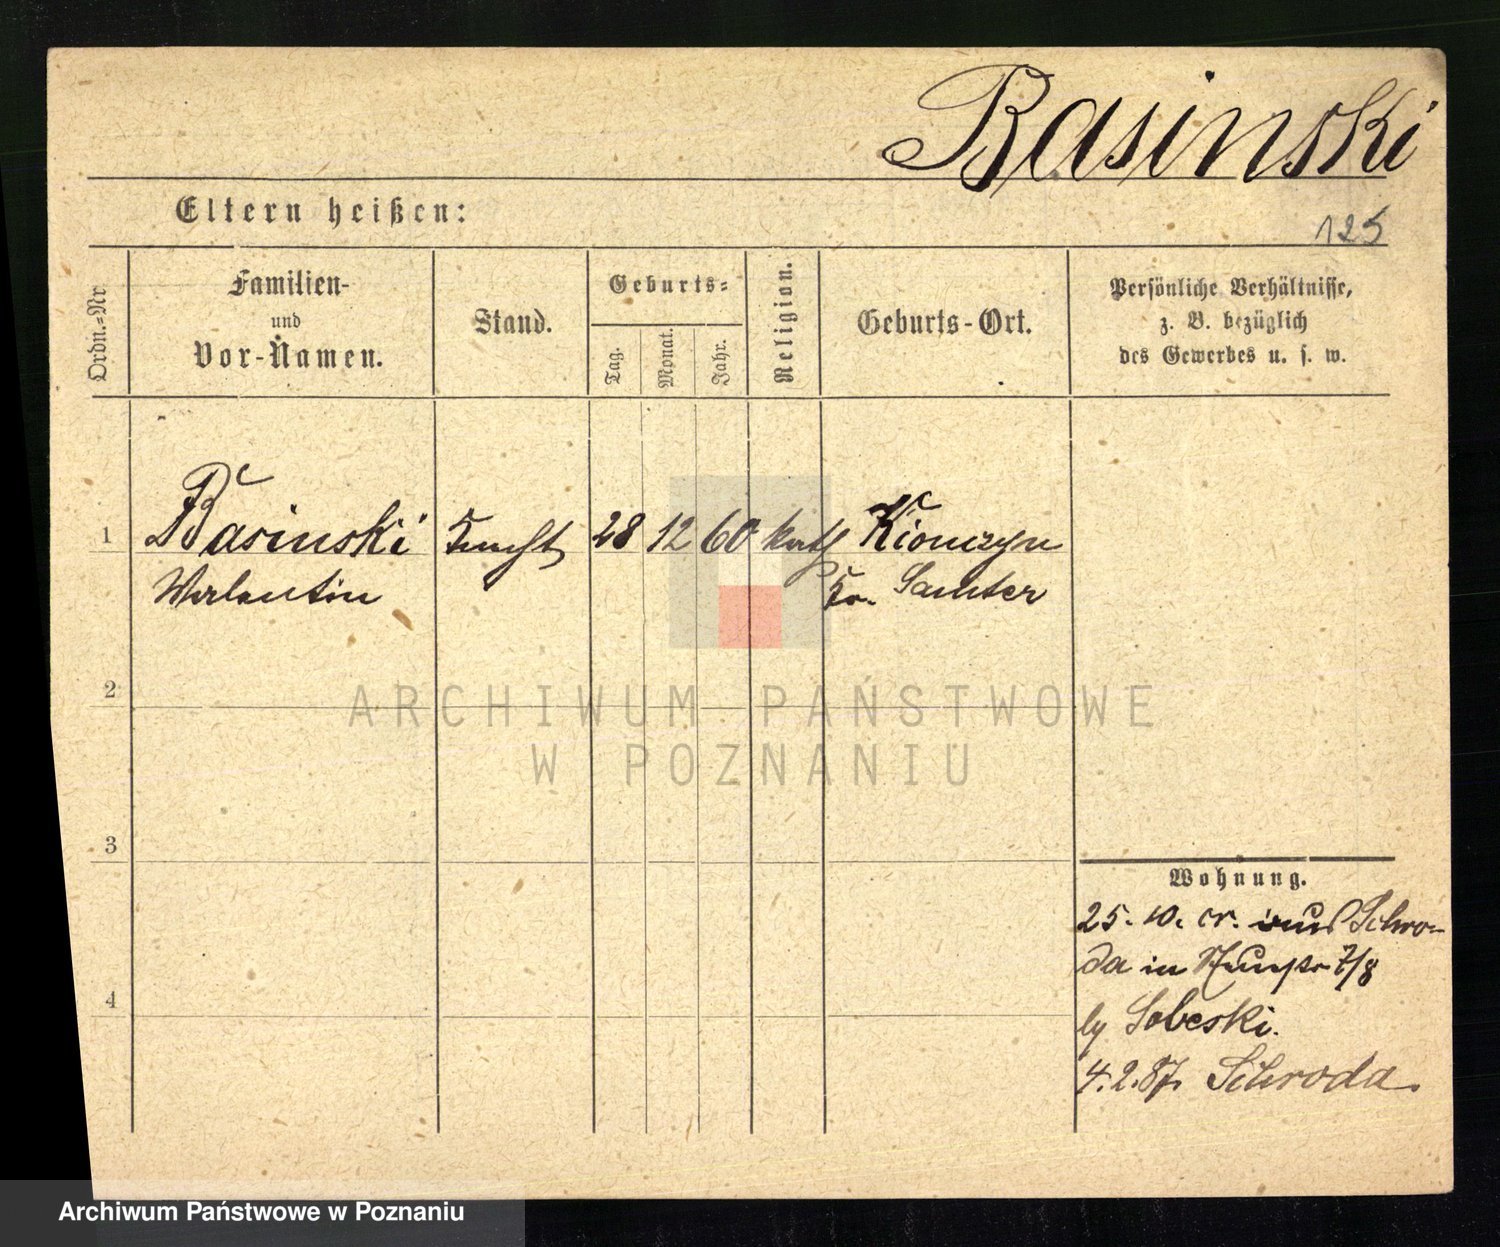 Basinski
Eltern heißen:
125
Ordn.-Nr.
Familien-
und
Vor-Namen.
Stand.
Geburts-
Tag.
Monat.
Jahr.
Religion.
Geburts-Ort.
Persönliche Verhältnisse,
z. B. bezüglich
des Gewerbes u. s. w.
1
Basinski
Valentin
Knecht
28
12
60
kath
Kionczyn
Kr. Samter
2
3
4
Wohnung.
25. 10. cr. aus Schro-
da in 7/8
by Sobeski.
4. 2. 87. Schroda.
ARCHIWUM PAŃSTWOWE
W POZNANIU
Archiwum Państwowe w Poznaniu